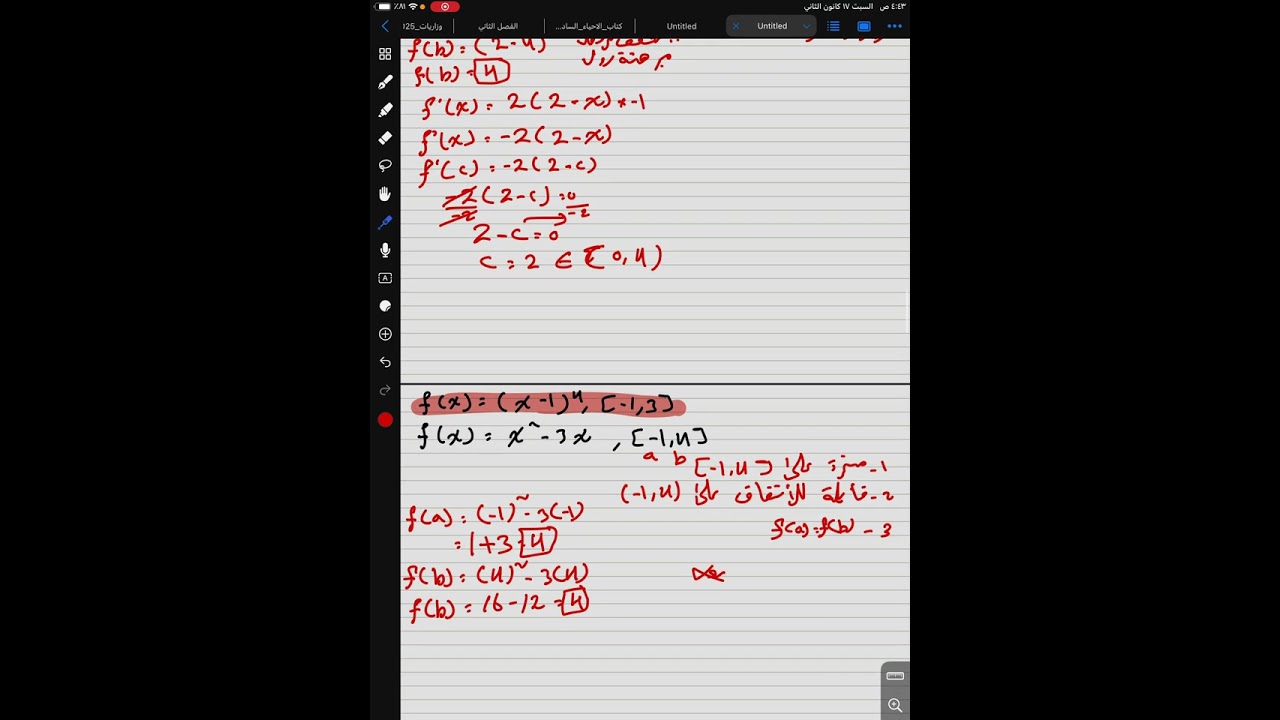 ٤:٤٣ ص السبت ١٧ كانون الثاني
٨١٪
وزاريات_125
الفصل الثاني
كتاب_الاحياء_الساد...
Untitled
Untitled
f(b) = (2-4)
f(b) = 4
f'(x) = 2(2-x) * -1
f'(x) = -2(2-x)
f'(c) = -2(2-c)
-2(2-c) = 0
-2 -2
2-c=0
c = 2 ∈ (0,4)
f(x) = (x-1)⁴, [-1,3]
f(x) = x² - 3x , [-1,4]
a b
1- مستمرة على [-1,4]
2- قابلة للاشتقاق على (-1,4)
f(a) = (-1)² - 3(-1)
3 - f(a) = f(b)
= 1+3 = 4
f(b) = (4)² - 3(4)
f(b) = 16-12 = 4